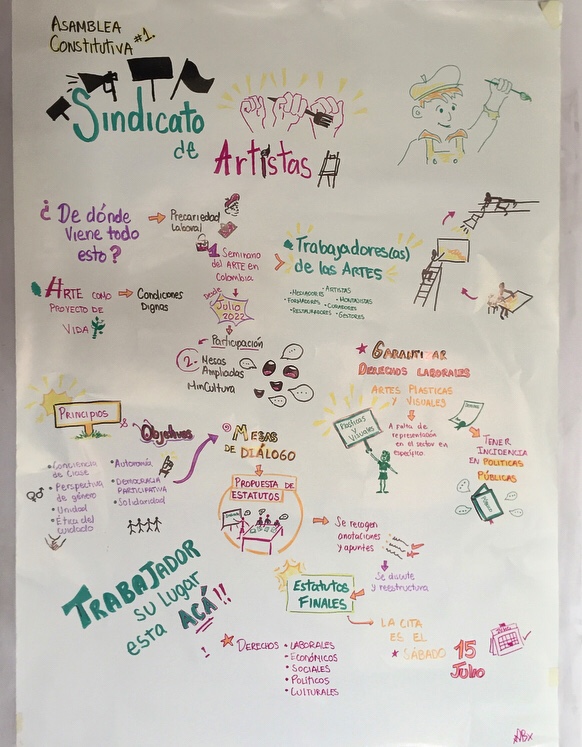 ASAMBLEA
CONSTITUTIVA #1.
Sindicato
de
Artistas
¿De dónde
viene todo
esto?
Precariedad
Laboral
1 Seminario
del ARTE en
Colombia
Desde
Julio
2022
ARTE como
PROYECTO DE
VIDA
Condiciones
Dignas
Participación
2. Mesas
Ampliadas
MinCultura
Trabajadores(as)
de las ARTES
• MEDIADORES • ARTISTAS
• FORMADORES • MONTAJISTAS
• CURADORES
• RESTAURADORES • GESTORES
GARANTIZAR
DERECHOS LABORALES
ARTES PLASTICAS
Y VISUALES
Plasticas
y
Visuales
A falta de
representación
en el sector en
específico.
TENER
INCIDENCIA
EN POLITICAS
PÚBLICAS
PRINCIPIOS
& Objetivos
• Conciencia
de clase
• Perspectiva
de género
• Unidad
• Ética del
cuidado
• Autonomía
• DEMOCRACIA
PARTICIPATIVA
• Solidaridad
MESAS
DE DIÁLOGO
PROPUESTA DE
ESTATUTOS
Se recogen
anotaciones
y apuntes
Se discute
y reestructura
Estatutos
FINALES
TRABAJADOR
su lugar
esta ACÁ!!
! DERECHOS
• LABORALES
• ECONÓMICOS
• SOCIALES
• POLITICOS
• CULTURALES
LA CITA
ES EL
SÁBADO
15
Julio